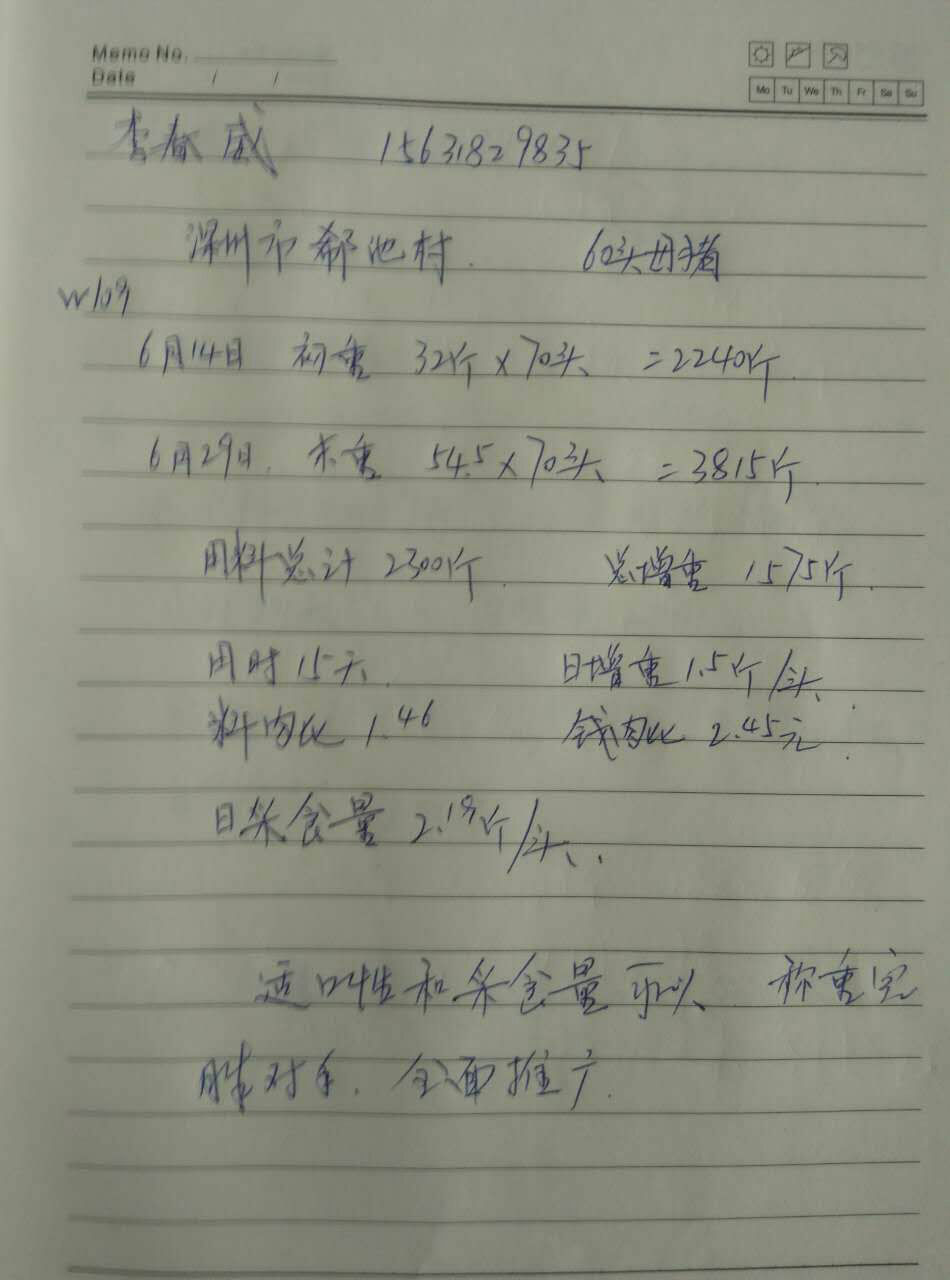 Memo No.
Date / /
Mo Tu We Th Fr Sa Su
李春威 15631829835
深州市郗池村. 60头母猪
W109
6月14日 初重 32斤×70头 =2240斤.
6月29日. 末重 54.5×70头 =3815斤.
用料总计 2300斤. 总增重 1575斤.
用时15天. 日增重1.5斤/头.
料肉比 1.46 钱肉比 2.45元.
日采食量 2.19斤/头..
适口性和采食量可以 称重完
胜对手. 全面推广.